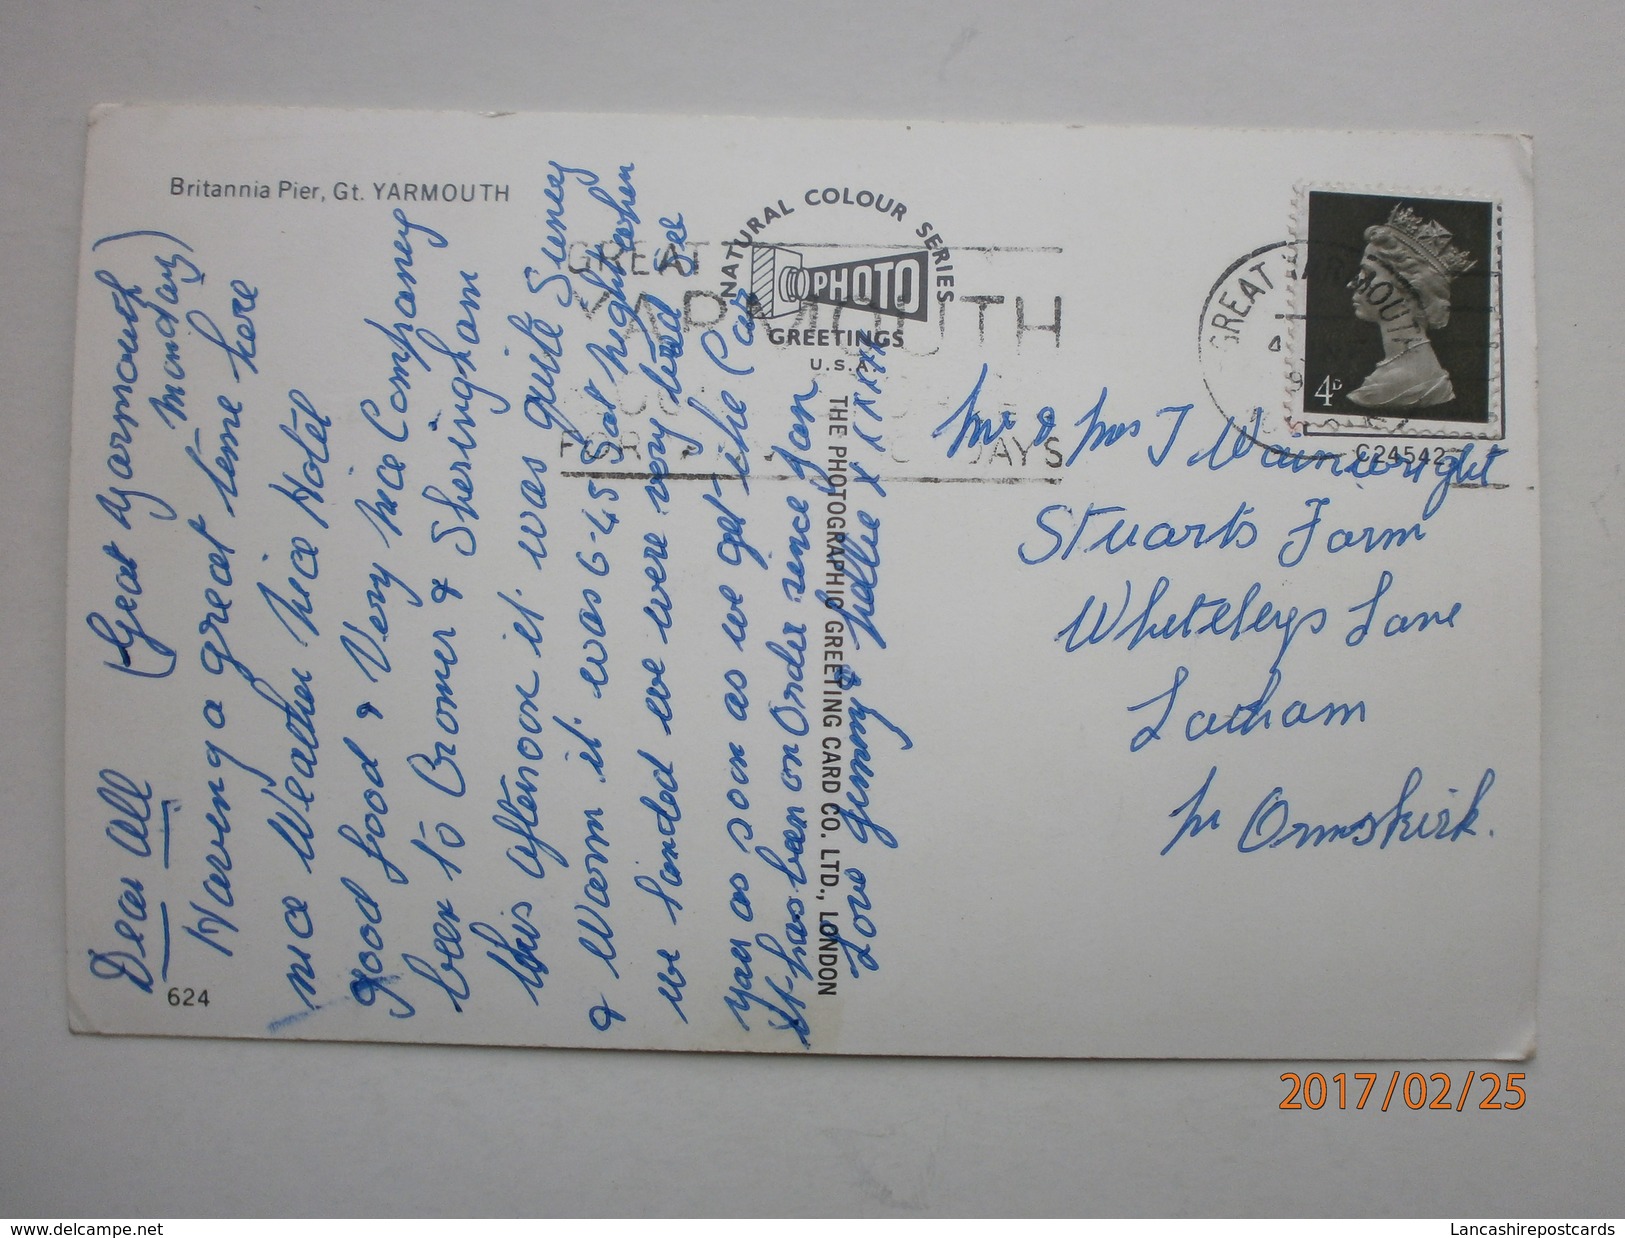 Britannia Pier, Gt. YARMOUTH
(Great Yarmouth)
Monday
Dear All
Having a great time here
nice Weather Nice Hotel
good food & Very nice Companey
been to Cromer & Sheringham
this afternoon it was quite Suney
& Warm it was 6-45 Sat night when
we landed we were very tired see
you as soon as we get the Car
it has been on Order since Jan
Love Jimmy Nellie x x x x x
624
NATURAL COLOUR SERIES
PHOTO
GREETINGS
U.S.A.
THE PHOTOGRAPHIC GREETING CARD CO. LTD., LONDON
GREAT
YARMOUTH
FOR
DAYS
GREAT YARMOUTH
4D
C24542
Mr & Mrs J Wainwright
Stuarts Farm
Whiteleys Lane
Lathom
Nr Ormskirk.
2017/02/25
www.delcampe.net
Lancashirepostcards